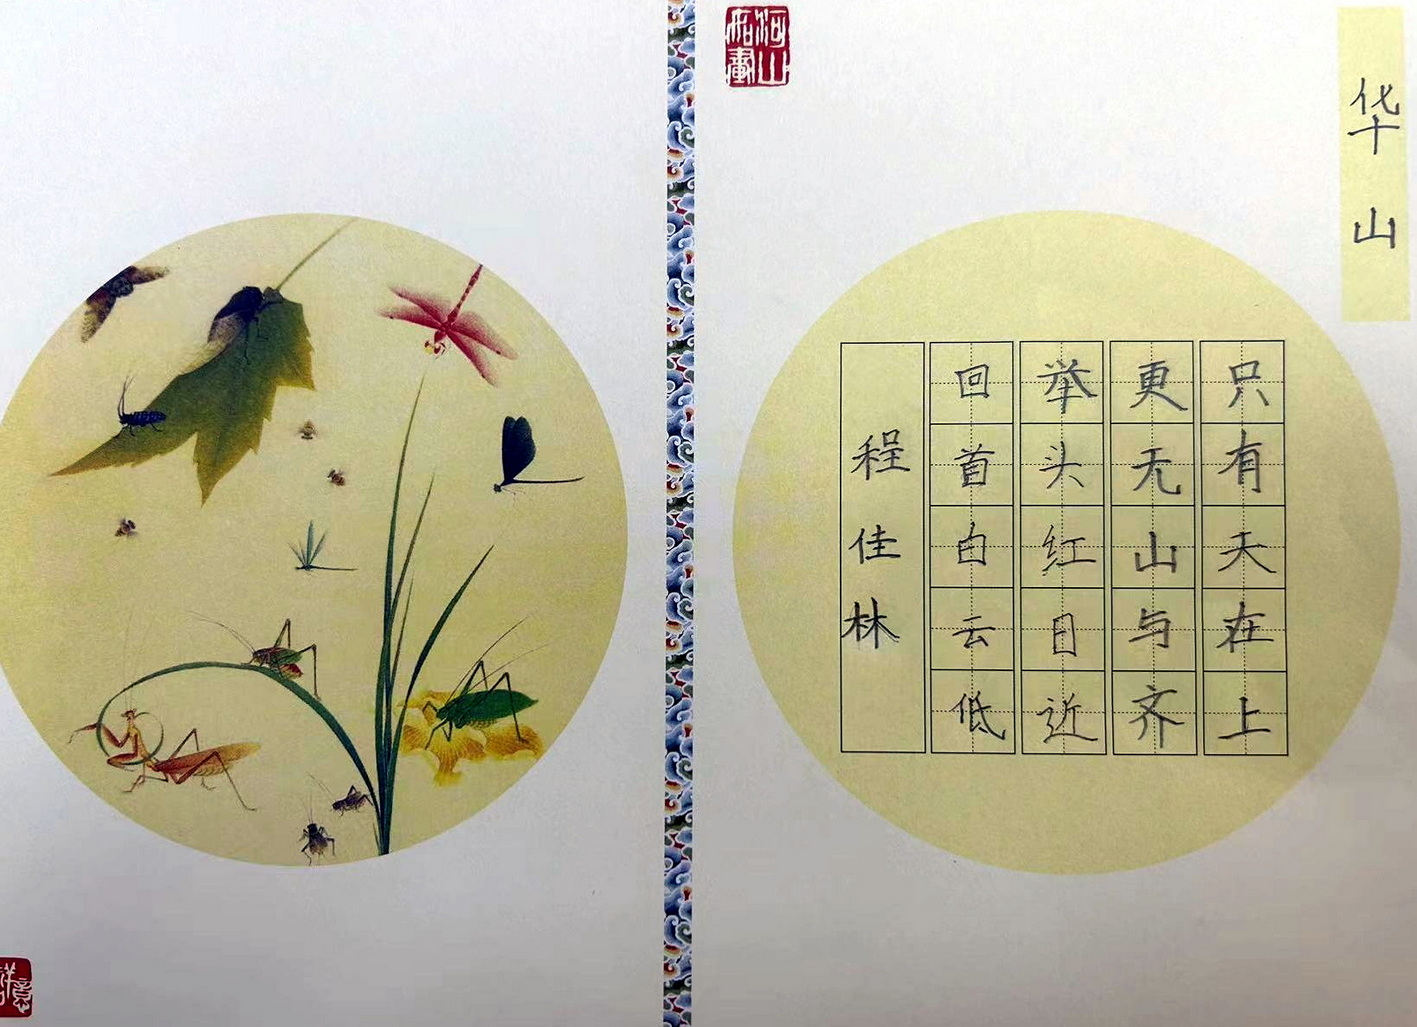 华山
只有天在上
更无山与齐
举头红日近
回首白云低
程佳林